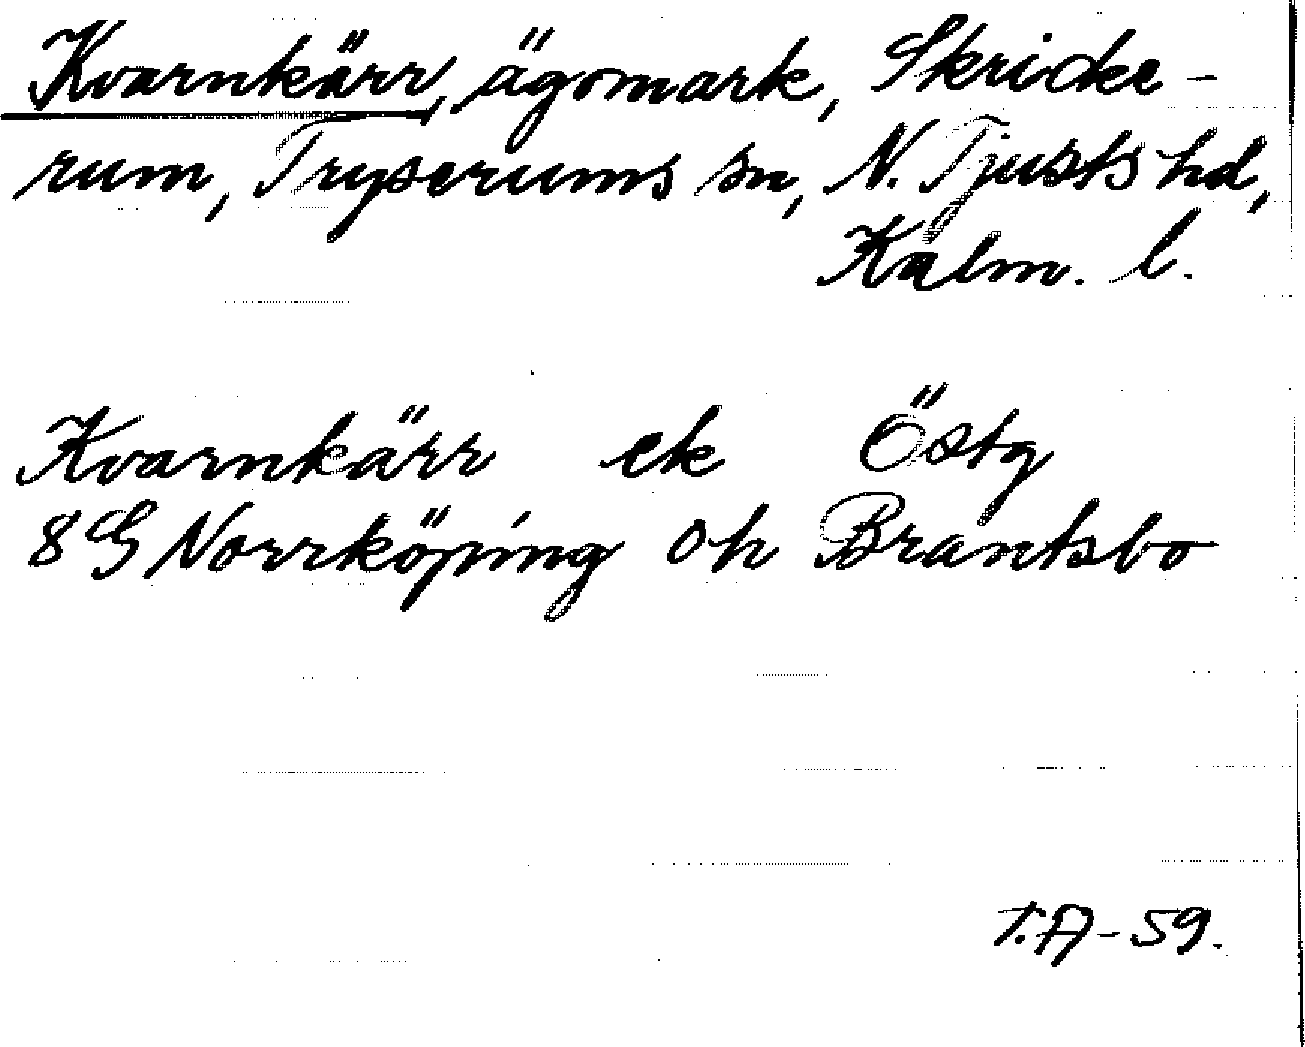 Kvarnkärr, ägomark, Skricke-
rum, Tryserums sn, N. Tjusts hd,
Kalm. l.
Kvarnkärr ek Östg
8G Norrköping Oh Brantsbo
T.A-59.